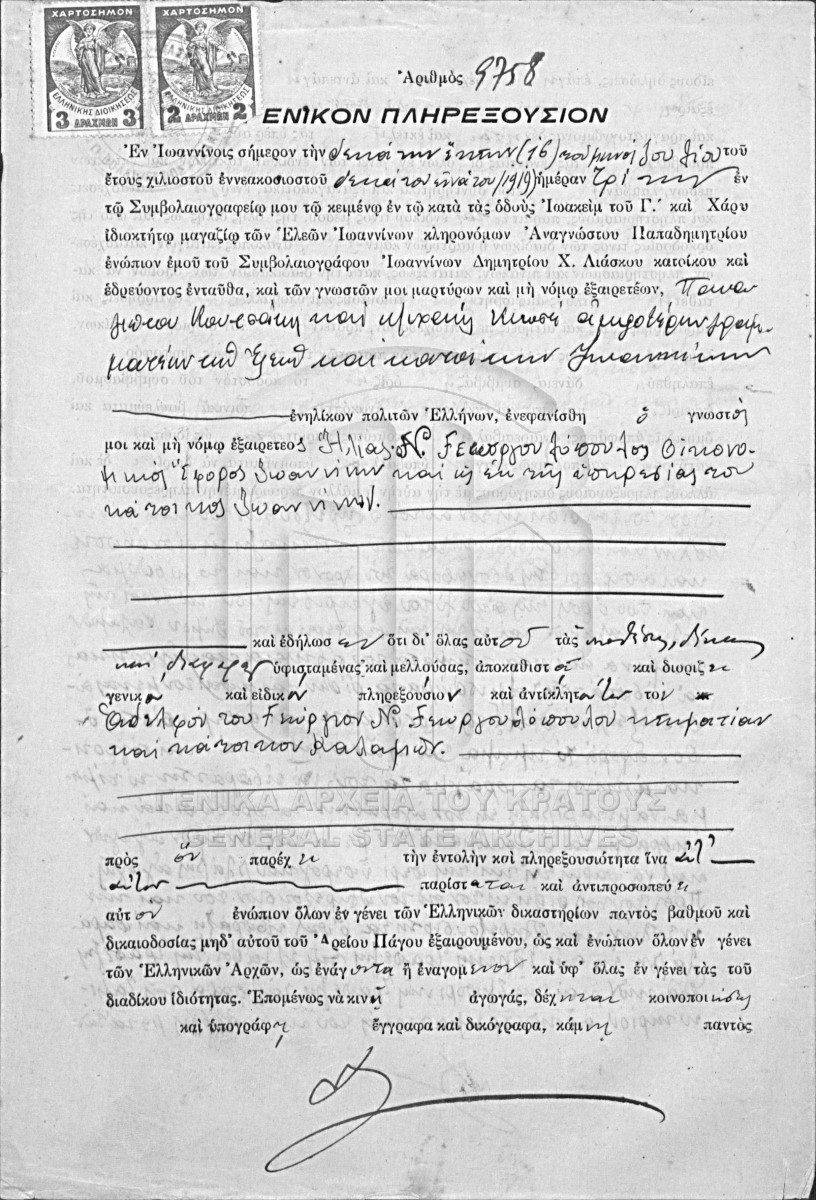 ΧΑΡΤΟΣΗΜΟΝ ΧΑΡΤΟΣΗΜΟΝ
ΕΛΛΗΝΙΚΗΣ ΔΙΟΙΚΗΣΕΩΣ ΕΛΛΗΝΙΚΗΣ ΔΙΟΙΚΗΣΕΩΣ
3 ΔΡΑΧΜΑΙ 3 2 ΔΡΑΧΜΑΙ 2
Ἀριθμὸς 9758
ΕΝΙΚΟΝ ΠΛΗΡΕΞΟΥΣΙΟΝ
Ἐν Ἰωαννίνοις σήμερον τὴν δεκάτην ἕκτην (16) τοῦ μηνὸς Ἰουλίου τοῦ
ἔτους χιλιοστοῦ ἐννεακοσιοστοῦ δεκάτου ἐννάτου (1919) ἡμέραν Τρίτην ἐν
τῷ Συμβολαιογραφείῳ μου τῷ κειμένῳ ἐν τῷ κατὰ τὰς ὁδοὺς Ἰωακεὶμ τοῦ Γ.´ καὶ Χάρυ
ἰδιοκτήτῳ μαγαζίῳ τῶν Ἐλεῶν Ἰωαννίνων κληρονόμων Ἀναγνώστου Παπαδημητρίου
ἐνώπιον ἐμοῦ τοῦ Συμβολαιογράφου Ἰωαννίνων Δημητρίου Χ. Λιάσκου κατοίκου καὶ
ἑδρεύοντος ἐνταῦθα, καὶ τῶν γνωστῶν μοι μαρτύρων καὶ μὴ νόμῳ ἐξαιρετέων,
καὶ ἀμφοτέρων
καὶ κατοίκων Ἰωαννίνων
ἐνηλίκων πολιτῶν Ἑλλήνων, ἐνεφανίσθη ὁ γνωστός
μοι καὶ μὴ νόμῳ ἐξαιρετέος Ἠλίας Ν. Γεωργουλόπουλος Οἰκονο-
μικὸς Ἔφορος Ἰωαννίνων καὶ ὡς ἐκ τῆς ὑπηρεσίας του
κάτοικος Ἰωαννίνων.
καὶ ἐδήλωσεν ὅτι δι' ὅλας αὐτοῦ τὰς δίκας
καὶ διαφορὰς ὑφισταμένας καὶ μελλούσας, ἀποκαθιστᾷ καὶ διορίζει
γενικὸν καὶ εἰδικὸν πληρεξούσιον καὶ ἀντίκλητον τὸν
ἀδελφόν του Γεώργιον Ν. Γεωργουλόπουλον κτηματίαν
καὶ κάτοικον Καλαμῶν.
ΓΕΝΙΚΑ ΑΡΧΕΙΑ ΤΟΥ ΚΡΑΤΟΥΣ
GENERAL STATE ARCHIVES
πρὸς ὃν παρέχει τὴν ἐντολὴν καὶ πληρεξουσιότητα ἵνα ἀντ'
αὐτοῦ παρίσταται καὶ ἀντιπροσωπεύει
αὐτὸν ἐνώπιον ὅλων ἐν γένει τῶν Ἑλληνικῶν δικαστηρίων παντὸς βαθμοῦ καὶ
δικαιοδοσίας μηδ' αὐτοῦ τοῦ Ἀρείου Πάγου ἐξαιρουμένου, ὡς καὶ ἐνώπιον ὅλων ἐν γένει
τῶν Ἑλληνικῶν Ἀρχῶν, ὡς ἐνάγοντα ἢ ἐναγόμενον καὶ ὑφ' ὅλας ἐν γένει τὰς τοῦ
διαδίκου ἰδιότητας. Ἑπομένως νὰ κινῇ ἀγωγάς, δέχηται κοινοποιήσεις
καὶ ὑπογράφῃ ἔγγραφα καὶ δικόγραφα, κάμνῃ παντὸς